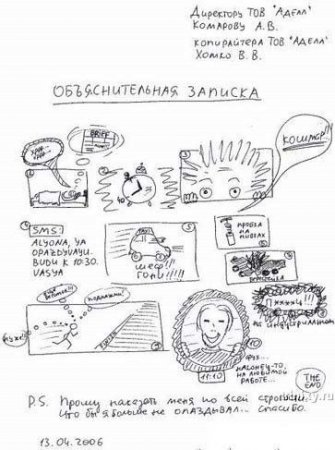 Директору ТОВ "Аделл"
Комарову А.В.
копирайтера ТОВ "Аделл"
Хомко В.В.
ОБЪЯСНИТЕЛЬНАЯ ЗАПИСКА
BRIEF
КОШМАР!!!
SMS:
ALYONA, YA
OPAZDYVAYU.
BUDU K 10:30.
VASYA
TAXI
ШЕФ!!!
ГОНИ!!!!
ПРОБКА
НА
ФУХ...
НАКОНЕЦ-ТО,
НА ЛЮБИМОЙ
РАБОТЕ...
11:10
THE
END
P.S. Прошу наказать меня по всей строгости,
что бы я больше не опаздывал... Спасибо.
13.04.2006